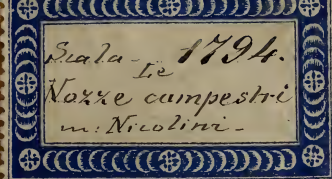 Scala - 1794.
Le
Nozze campestri
m: Nicolini -